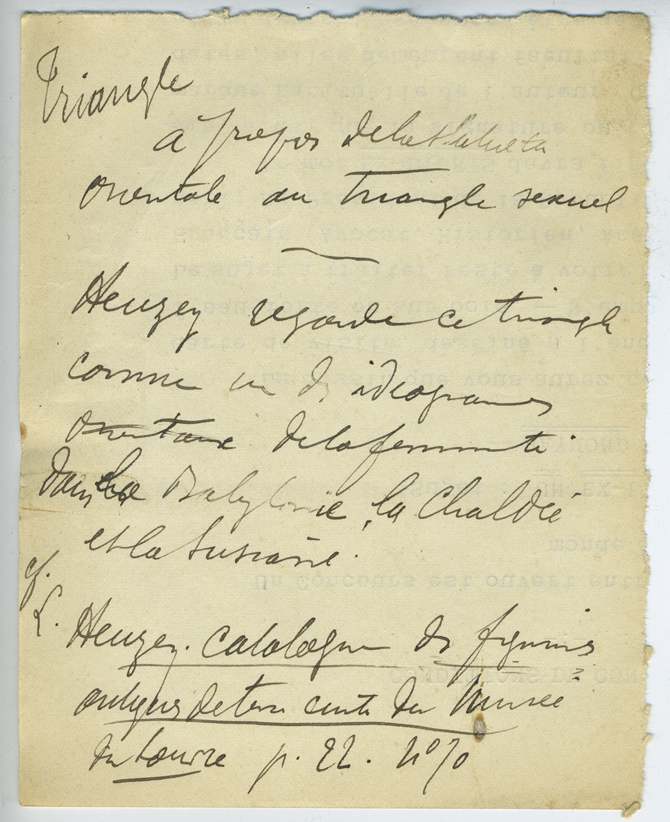 Triangle
à propos de la
orientale au triangle sexuel
Heuzey regarde ce triangle
comme un des idéogrames
de la feminité
dans la Babylonie, la Chaldée
et la Susiane.
cf.
L.
Heuzey. Catalogue des figurines
antiques de terre cuite du Musée
du Louvre p. 22. N° 70